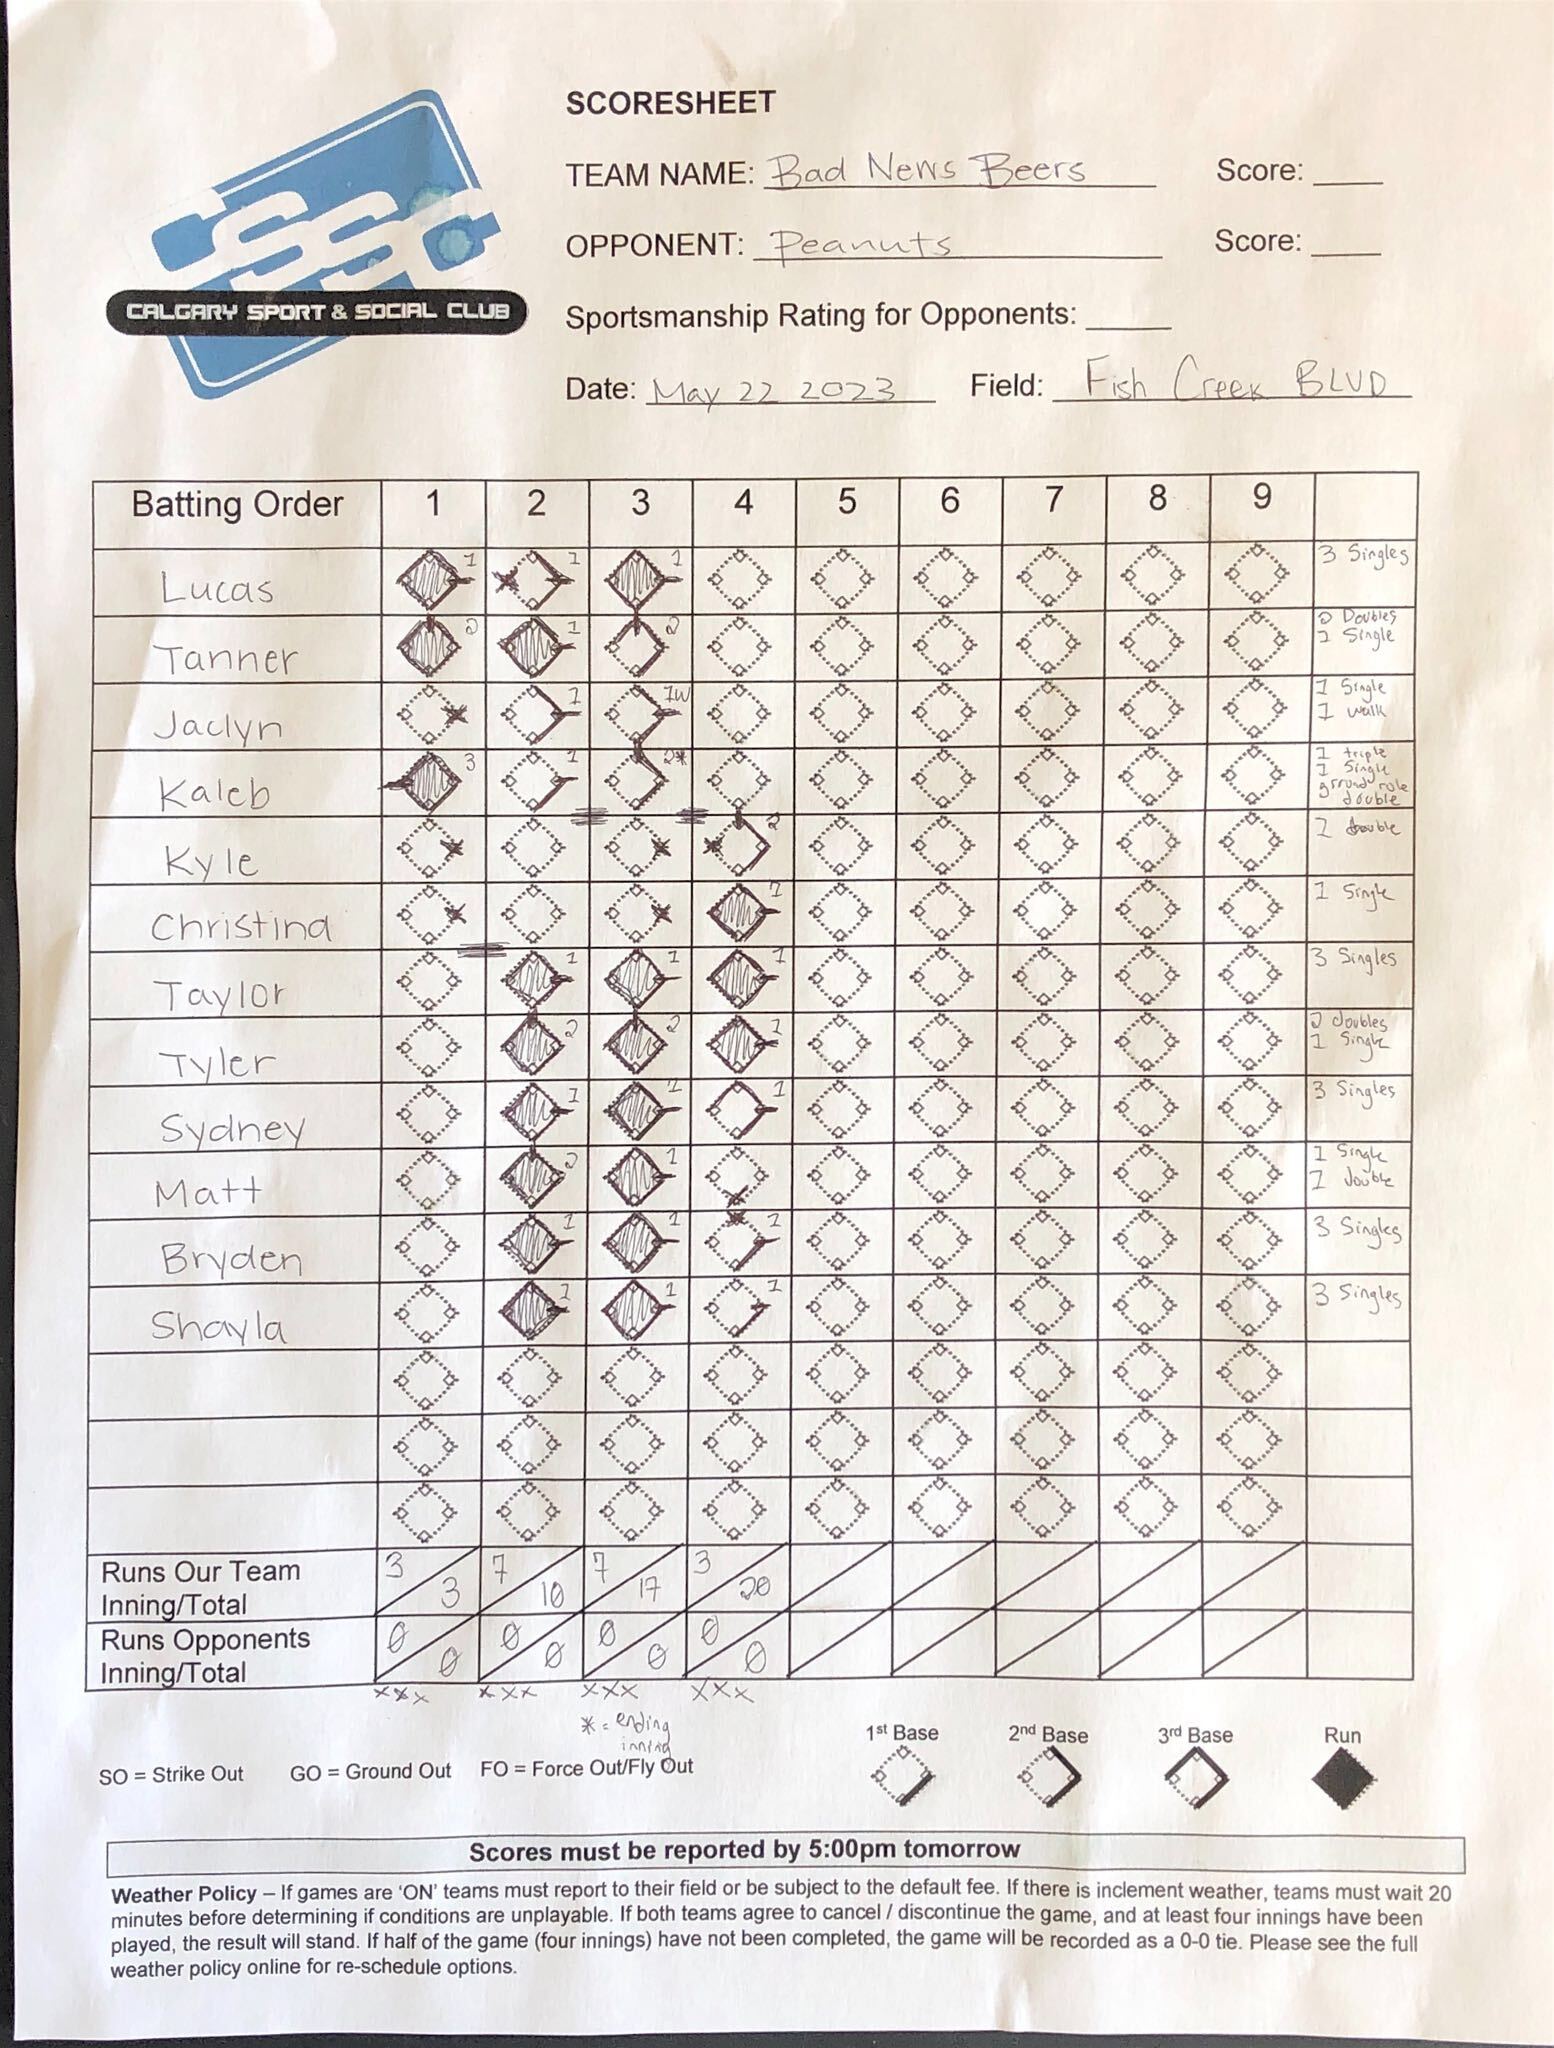 SCORESHEET
TEAM NAME: Bad News Beers Score: ____
OPPONENT: Peanuts Score: ____
CSSC
CALGARY SPORT & SOCIAL CLUB
Sportsmanship Rating for Opponents: _____
Date: May 22 2023 Field: Fish Creek BLVD
Batting Order 1 2 3 4 5 6 7 8 9
Lucas 1 1 1 3 Singles
Tanner 2 1 2 2 Doubles
1 Single
Jaclyn 1 1W 1 Single
1 walk
Kaleb 3 1 2* 1 triple
1 Single
ground rule
double
Kyle 2 1 double
Christina 1 1 Single
Taylor 1 1 1 3 Singles
Tyler 2 2 1 2 doubles
1 Single
Sydney 1 1 1 3 Singles
Matt 2 1 1 Single
1 double
Bryden 1 1 1 3 Singles
Shayla 1 1 1 3 Singles
Runs Our Team
Inning/Total 3 3 7 10 7 17 3 20
Runs Opponents
Inning/Total 0 0 0 0 0 0 0 0
x x x x x x x x x x x x
* = ending
inning
SO = Strike Out GO = Ground Out FO = Force Out/Fly Out
1st Base 2nd Base 3rd Base Run
Scores must be reported by 5:00pm tomorrow
Weather Policy – If games are ‘ON’ teams must report to their field or be subject to the default fee. If there is inclement weather, teams must wait 20
minutes before determining if conditions are unplayable. If both teams agree to cancel / discontinue the game, and at least four innings have been
played, the result will stand. If half of the game (four innings) have not been completed, the game will be recorded as a 0-0 tie. Please see the full
weather policy online for re-schedule options.